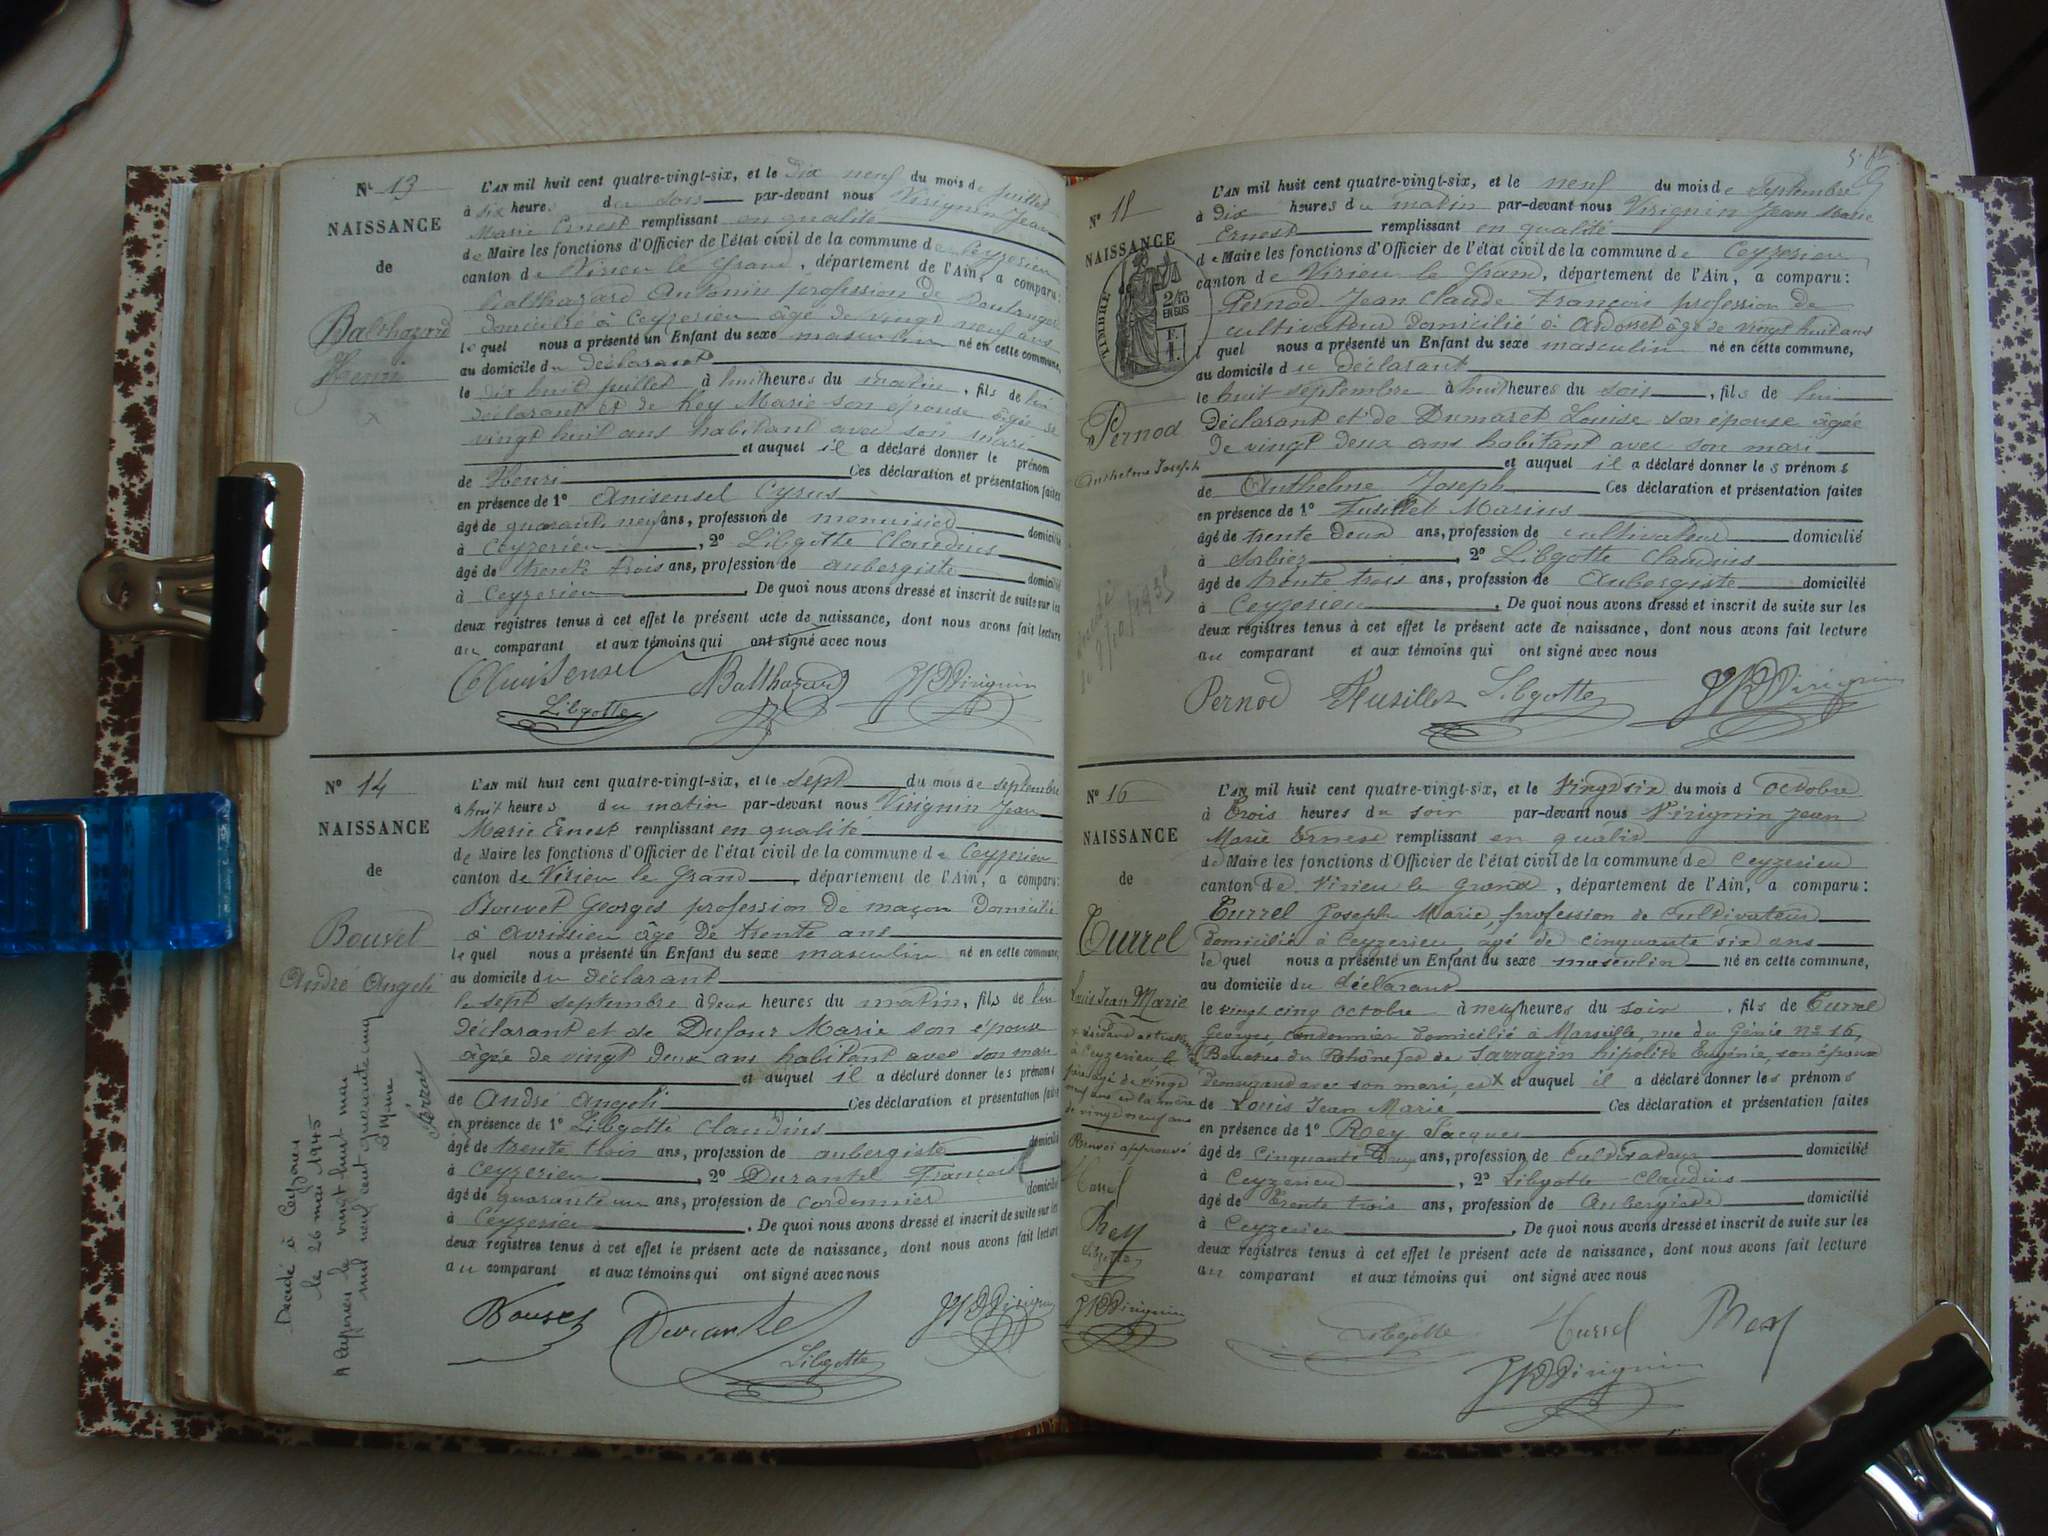 Nº 13
NAISSANCE
de
Balthazard
Henri
L'AN mil huit cent quatre-vingt-six, et le dix neuf du mois de juillet
à six heures du soir par-devant nous Virignin Jean
Marie Ernest remplissant en qualité
de Maire les fonctions d'Officier de l'état civil de la commune de Ceyzerieu
canton de Virieu le Grand, département de l'Ain, a comparu:
balthazard Antonin profession de boulanger
domicilié à Ceyzerieu âgé de vingt neuf ans
lequel nous a présenté un Enfant du sexe masculin né en cette commune,
au domicile du déclarant
le dix huit juillet à huit heures du matin, fils de lui
déclarant et de Rey Marie son épouse âgée de
vingt huit ans habitant avec son mari
et auquel il a déclaré donner le prénom
de Henri Ces déclaration et présentation faites
en présence de 1º Anisensel Cyrus
âgé de quarante neuf ans, profession de menuisier domicilié
à Ceyzerieu, 2º Libgotte Claudius
âgé de trente trois ans, profession de aubergiste domicilié
à Ceyzerieu. De quoi nous avons dressé et inscrit de suite sur les
deux registres tenus à cet effet le présent acte de naissance, dont nous avons fait lecture
au comparant et aux témoins qui ont signé avec nous
Balthazard Virignin
Libgotte
Nº 14
NAISSANCE
de
Bouvet
André Angeli
Decédé à Ceyzerieu
le 26 mai 1945
A Ceyzerieu le vingt huit mai
mil neuf cent quarante cinq
L'AN mil huit cent quatre-vingt-six, et le sept du mois de septembre
à huit heures du matin par-devant nous Virignin Jean
Marie Ernest remplissant en qualité
de Maire les fonctions d'Officier de l'état civil de la commune de Ceyzerieu
canton de Virieu le Grand, département de l'Ain, a comparu:
Bouvet Georges profession de maçon domicilié
à Avrissieu âge de trente ans
lequel nous a présenté un Enfant du sexe masculin né en cette commune,
au domicile du déclarant
le sept septembre à deux heures du matin, fils de lui
déclarant et de Dufour Marie son épouse
âgée de vingt deux ans habitant avec son mari
et auquel il a déclaré donner les prénoms
de André Angeli Ces déclaration et présentation faites
en présence de 1º Libgotte Claudius
âgé de trente trois ans, profession de aubergiste domicilié
à Ceyzerieu, 2º Durantel François
âgé de quarante un ans, profession de cordonnier domicilié
à Ceyzerieu. De quoi nous avons dressé et inscrit de suite sur les
deux registres tenus à cet effet le présent acte de naissance, dont nous avons fait lecture
au comparant et aux témoins qui ont signé avec nous
Bouvet Durantel Virignin
Libgotte
Nº 15
NAISSANCE
TIMBRE
2/10
EN SUS
Pernod
Anthelme Joseph
L'AN mil huit cent quatre-vingt-six, et le neuf du mois de septembre
à dix heures du matin par-devant nous Virignin Jean Marie
Ernest remplissant en qualité
de Maire les fonctions d'Officier de l'état civil de la commune de Ceyzerieu
canton de Virieu le Grand, département de l'Ain, a comparu:
Pernod Jean Claude François profession de
cultivateur domicilié à Ardosset âgé de vingt huit ans
lequel nous a présenté un Enfant du sexe masculin né en cette commune,
au domicile du déclarant
le huit septembre à huit heures du soir, fils de lui
déclarant et de Dumaret Louise son épouse âgée
de vingt deux ans habitant avec son mari
et auquel il a déclaré donner les prénoms
de Anthelme Joseph Ces déclaration et présentation faites
en présence de 1º Fusillet Marius
âgé de trente deux ans, profession de cultivateur domicilié
à Morbiez, 2º Libgotte Claudius
âgé de trente trois ans, profession de Aubergiste domicilié
à Ceyzerieu. De quoi nous avons dressé et inscrit de suite sur les
deux registres tenus à cet effet le présent acte de naissance, dont nous avons fait lecture
au comparant et aux témoins qui ont signé avec nous
Pernod Fusillet Libgotte Virignin
Nº 16
NAISSANCE
de
Currel
Louis Jean Marie
Renvoi approuvé
Rey
Libgotte
Virignin
L'AN mil huit cent quatre-vingt-six, et le vingt six du mois d'octobre
à trois heures du soir par-devant nous Virignin Jean
Marie Ernest remplissant en qualité
de Maire les fonctions d'Officier de l'état civil de la commune de Ceyzerieu
canton de Virieu le Grand, département de l'Ain, a comparu:
Currel Joseph Marie, profession de cultivateur
domicilié à Ceyzerieu, âgé de cinquante six ans
lequel nous a présenté un Enfant du sexe masculin né en cette commune,
au domicile du déclarant
le vingt cinq octobre à neuf heures du soir, fils de Currel
Georges, cordonnier domicilié à Marseille, rue du Génie nº 16,
Bouches du Rhône, et de Sarrazin hipolite Eugénie, son épouse
demeurant avec son mari, et X et auquel il a déclaré donner les prénoms
de Louis Jean Marie Ces déclaration et présentation faites
en présence de 1º Rey Jacques
âgé de cinquante ans, profession de Cultivateur domicilié
à Ceyzerieu, 2º Libgotte Claudius
âgé de trente trois ans, profession de Aubergiste domicilié
à Ceyzerieu. De quoi nous avons dressé et inscrit de suite sur les
deux registres tenus à cet effet le présent acte de naissance, dont nous avons fait lecture
au comparant et aux témoins qui ont signé avec nous
Libgotte Currel Rey
Virignin